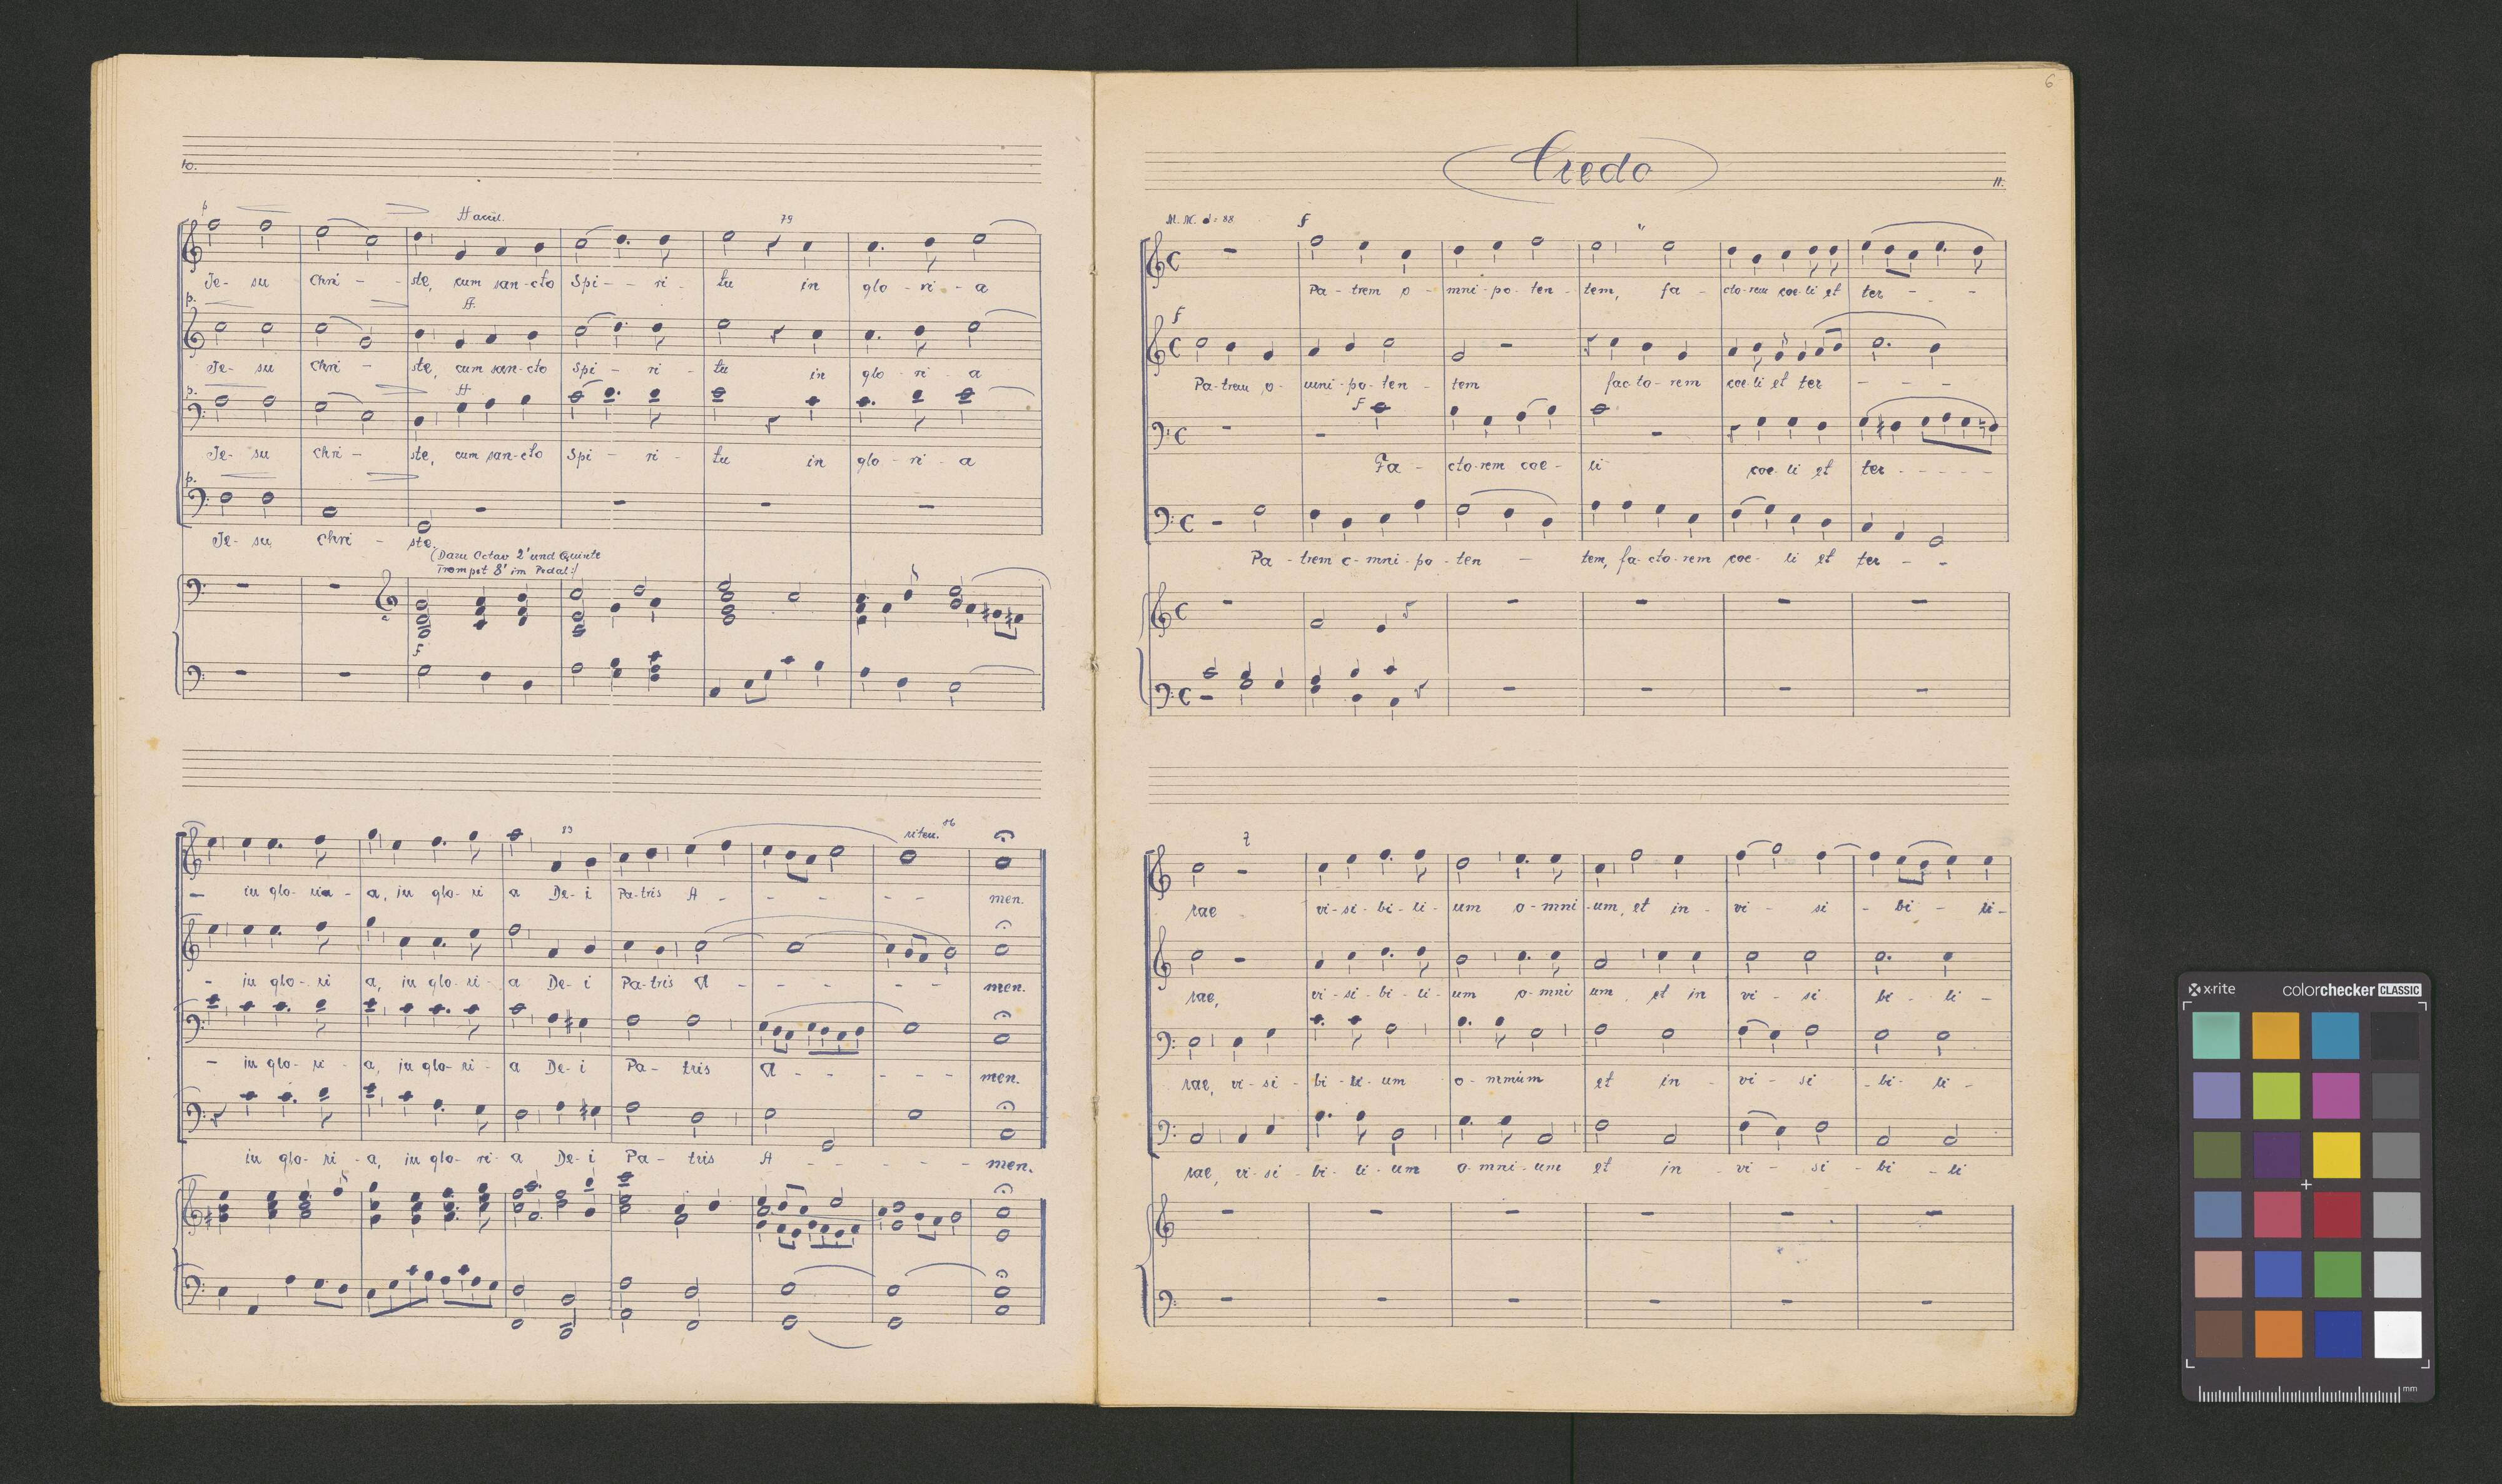 10.
p
H accel.
79
Je- su Chri - - ste, cum san-cto Spi - - ri - tu in glo - ri - a
p.
H.
Je- su Chri - ste, cum san-cto Spi - ri - tu in glo - ri - a
p.
H
Je- su Chri - ste, cum san-cto Spi - ri - tu in glo - ri - a
p.
Je- su Chri - ste.
(Dazu Octav 2' und Quinte
Trompet 8' im Pedal:/
f
83
riten. 86
- in glo- ria - a, in glo- ri a De- i Pa-tris A - - - - - men.
- in glo- ri a, in glo- ri- a De- i Pa-tris A - - - - - men.
- in glo- ri - a, in glo- ri - a De- i Pa- tris A - - - - men.
in glo- ri - a, in glo- ri- a De- i Pa- tris A - - - - men.
6
Credo
11.
M. M. ♩ = 88
f
Pa - trem o - mni - po - ten - tem, fa - cto-rem coe-li et ter - - -
f
Pa-trem o- mni - po - ten - tem fac-to - rem coe-li et ter - - - -
f
Fa - cto-rem coe - li coe- li et ter - - - - -
Pa - trem o - mni - po - ten - tem, fa- cto-rem coe- li et ter - -
7
rae vi - si - bi - li - um o - mni -um, et in - vi - si - bi - li -
rae, vi - si - bi - li - um o - mni um, et in vi - si bi - li -
rae, vi - si - bi - li - um o - mnium et in - vi - si - bi - li -
rae, vi - si - bi - li - um o - mni - um et in - vi - si - bi - li
x-rite
colorchecker CLASSIC
mm